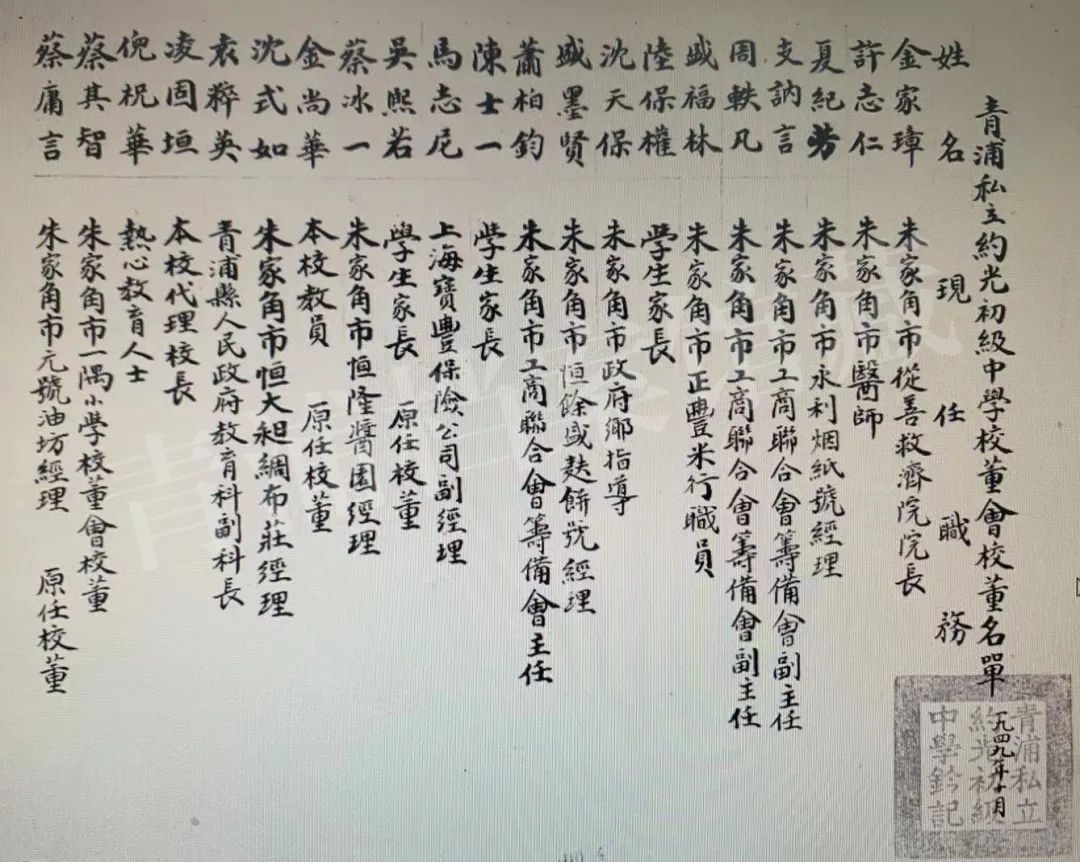 青浦私立約光初級中學校董會校董名單
一九四九年十月
姓名 現任職務
金家璋 朱家角市從善救濟院院長
許志仁 朱家角市醫師
夏紀芳 朱家角市永利烟紙號經理
支訥言 朱家角市工商聯合會籌備會副主任
周軼凡 朱家角市工商聯合會籌備會副主任
盛福林 朱家角市正豐米行職員
陸保權 學生家長
沈天保 朱家角市政府鄉指導
盛墨賢 朱家角市恒餘盛麩餅號經理
蕭柏鈞 朱家角市工商聯合會籌備會主任
陳士一 學生家長
馬志尼 上海寶豐保險公司副經理
吳熙若 學生家長 原任校董
蔡冰一 朱家角市恒隆醬園經理
金尚華 本校教員 原任校董
沈式如 朱家角市恒大昶綢布莊經理
袁粹英 青浦縣人民政府教育科副科長
凌固垣 本校代理校長
倪祝華 熱心教育人士
蔡其智 朱家角市一隅小學校董會校董
蔡庸言 朱家角市元號油坊經理 原任校董
青浦私立
約光初級
中學鈐記